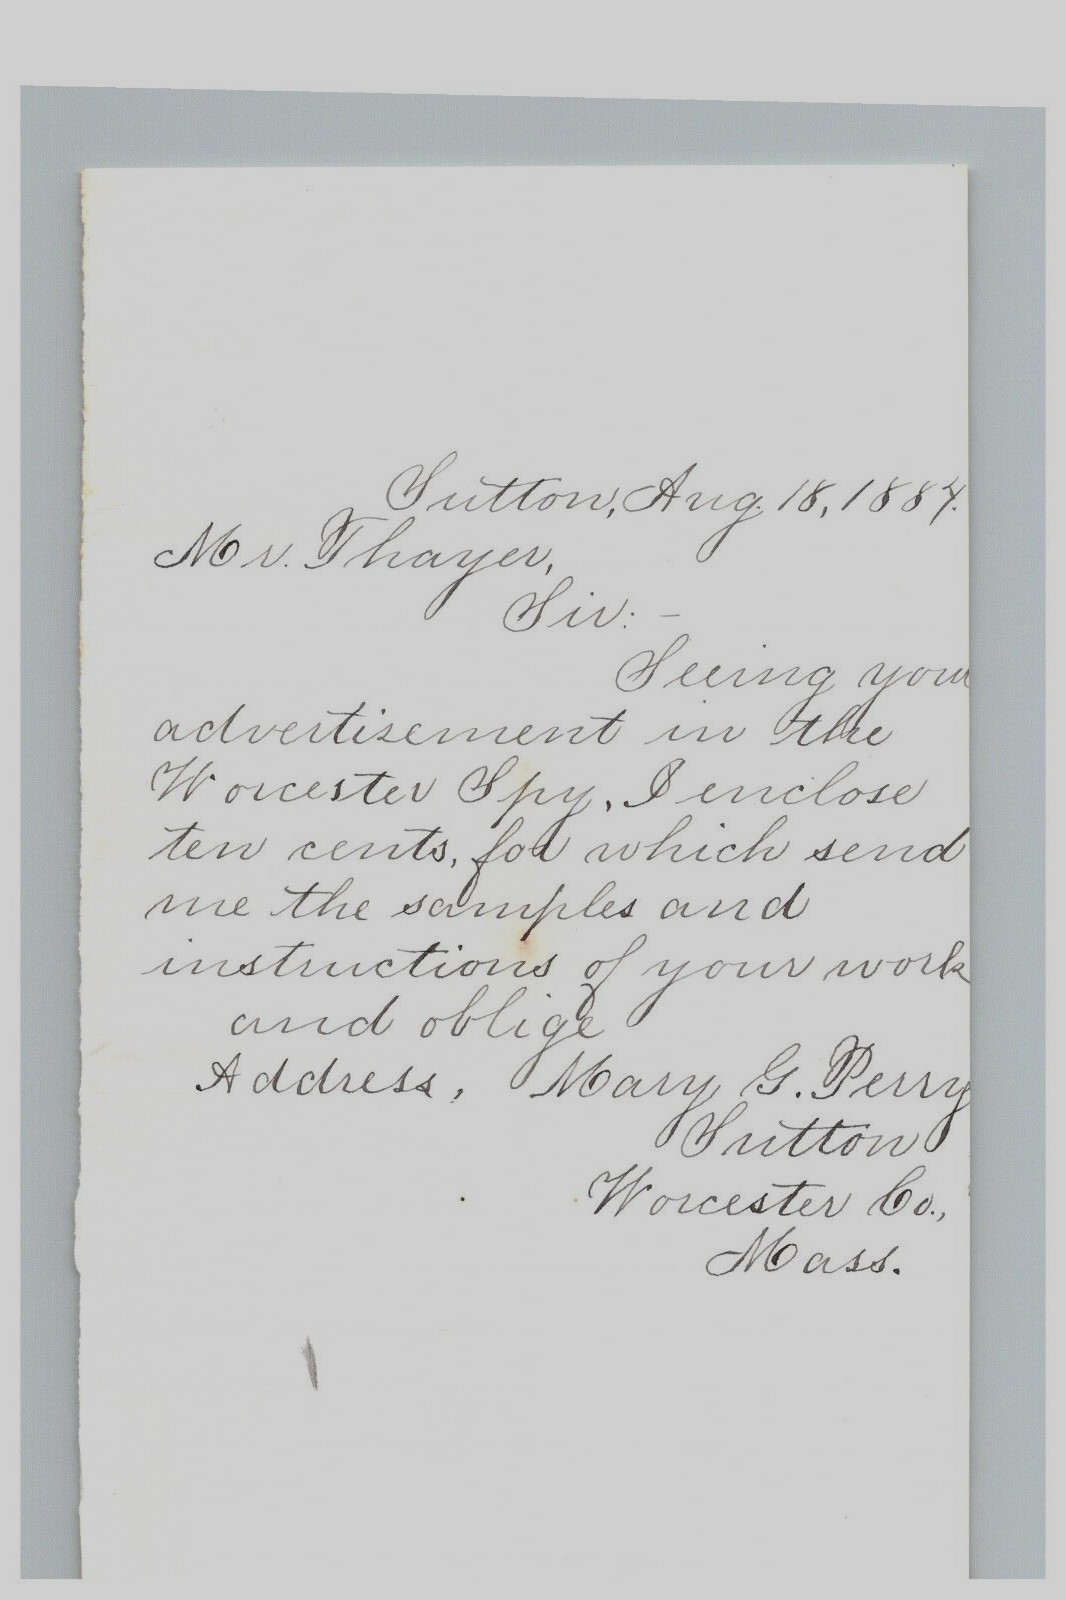 Sutton, Aug. 18, 1884.
Mr. Thayer,
Sir: –
Seeing your
advertisement in the
Worcester Spy, I enclose
ten cents, for which send
me the samples and
instructions of your work
and oblige
Address, Mary G. Perry
Sutton
Worcester Co.,
Mass.